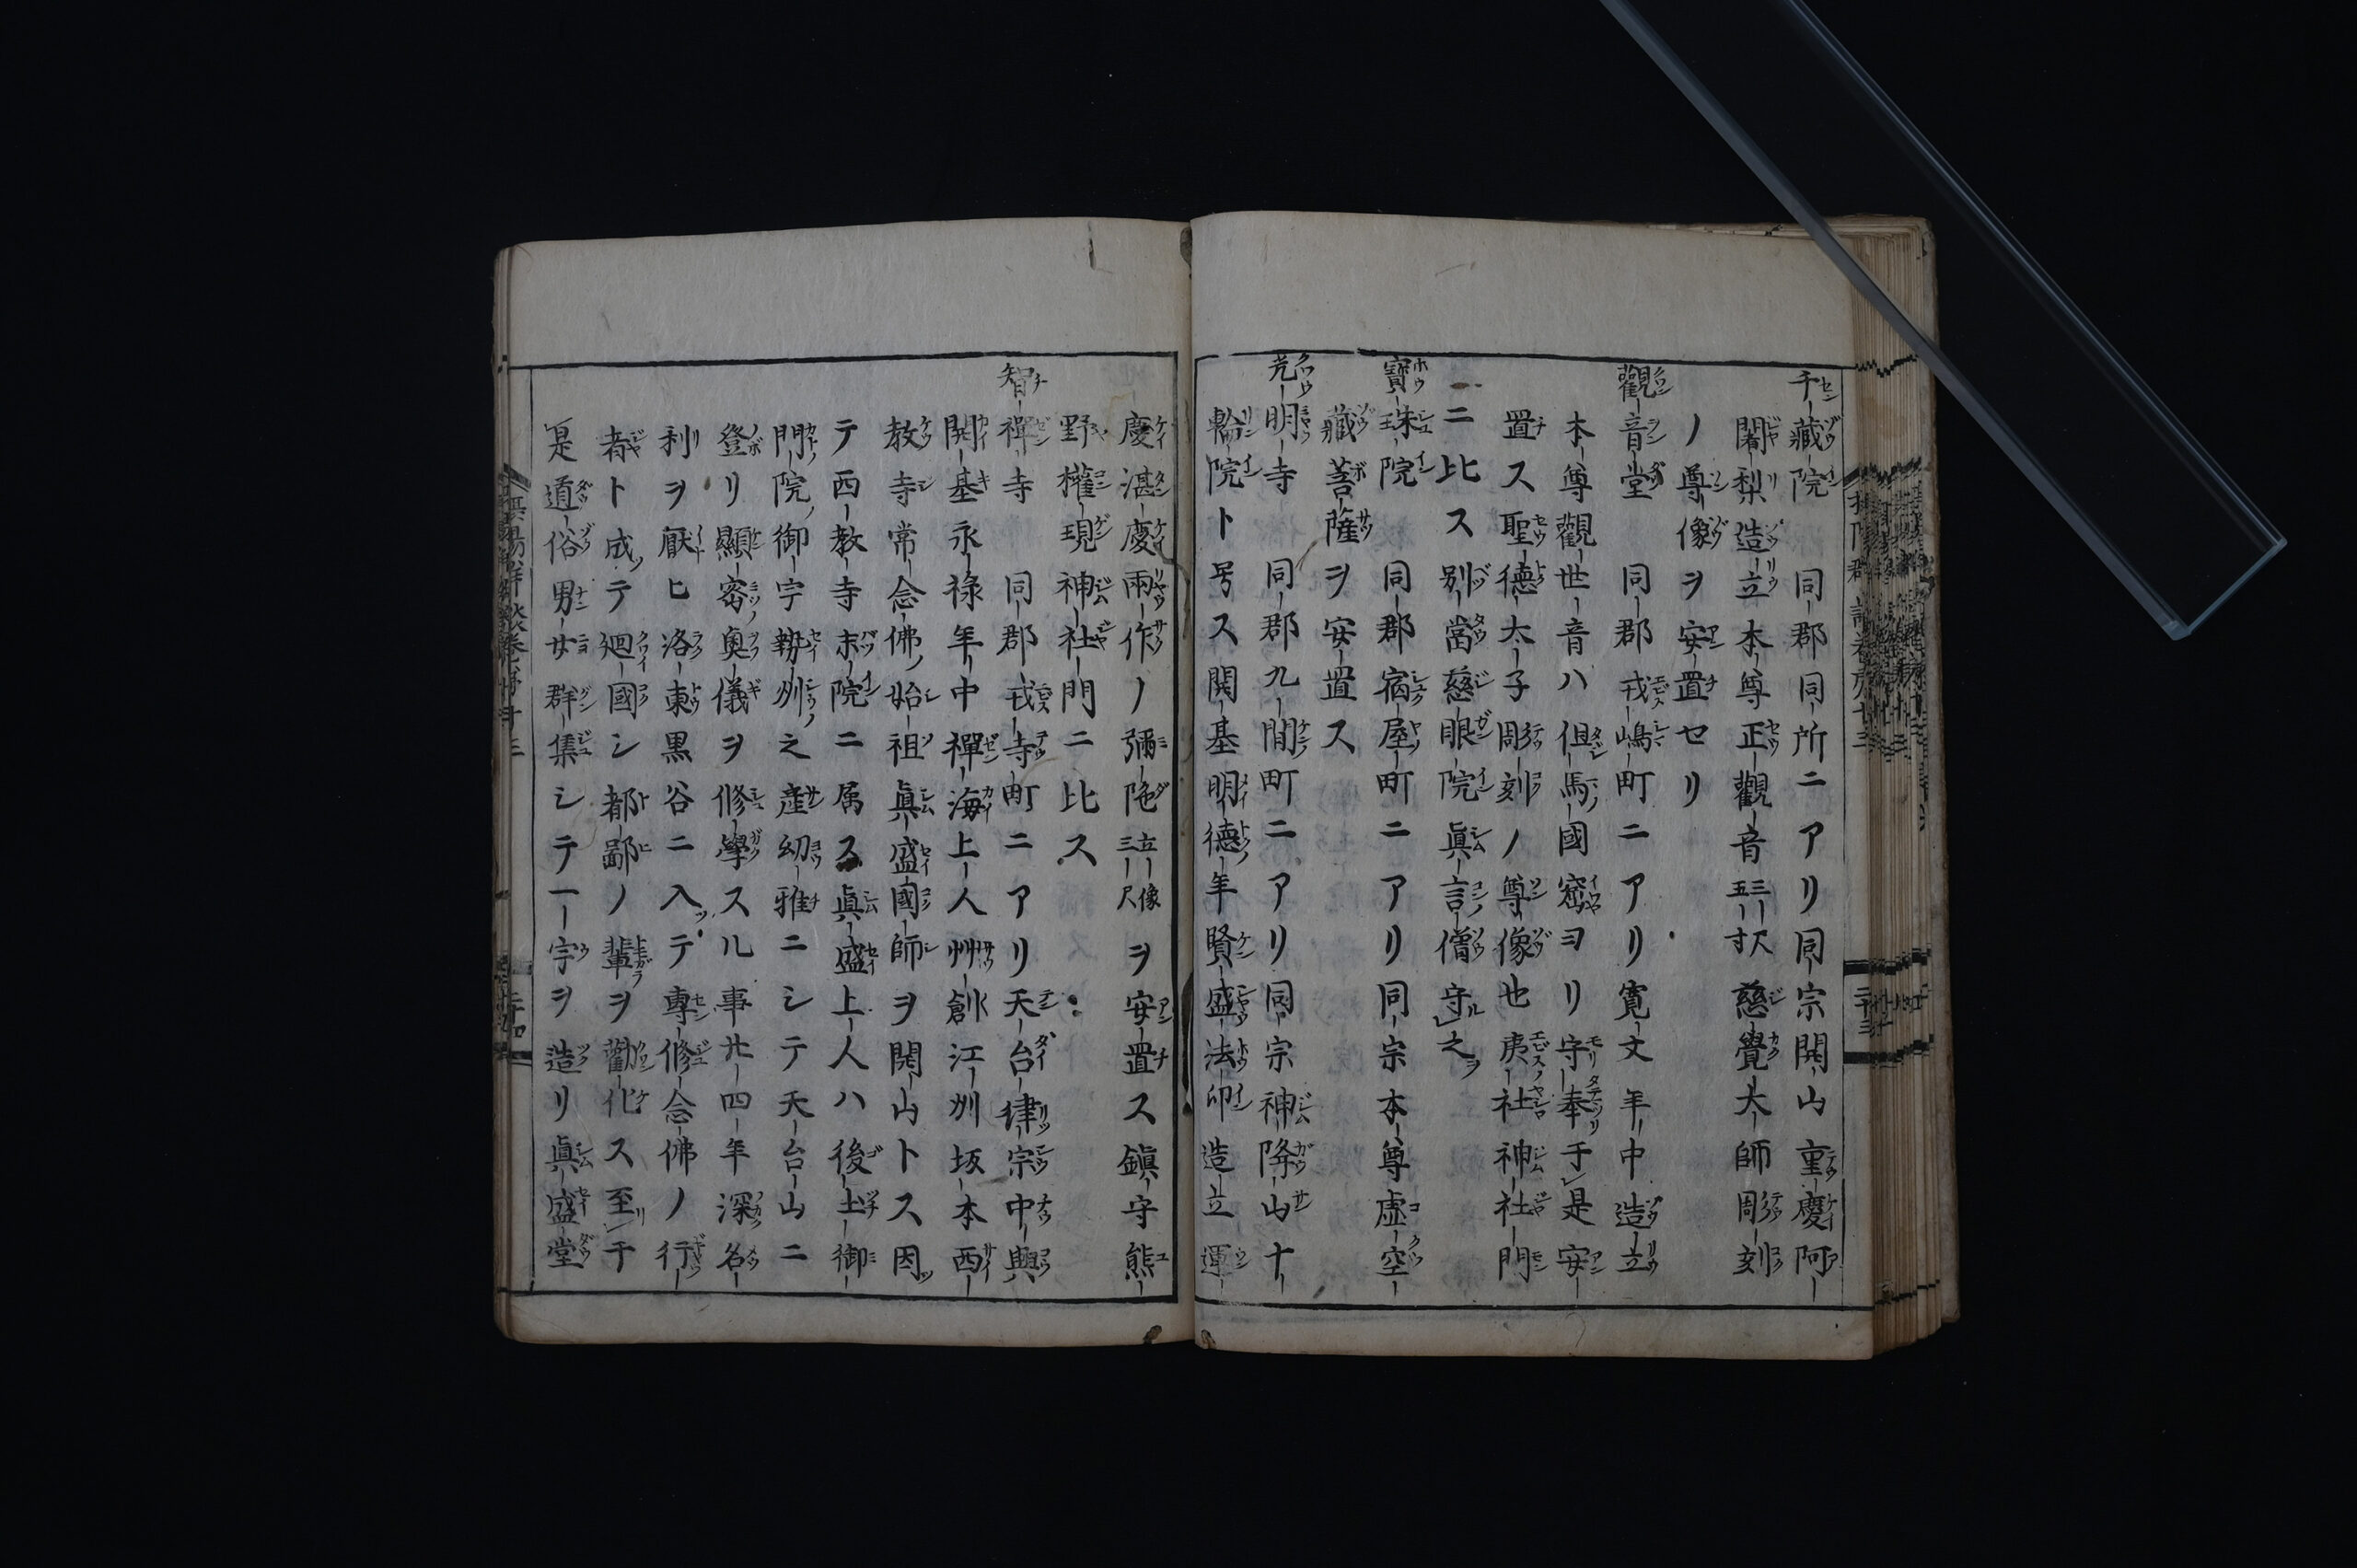 千藏院 同郡同所ニアリ同宗開山重慶阿
闍梨造立本尊正觀音三尺五寸慈覺大師彫刻
ノ尊像ヲ安置セリ
觀音堂 同郡戎嶋町ニアリ寛文年中造立
本尊觀世音ハ但馬國窟ヨリ守奉于是安
置ス聖德太子彫刻ノ尊像也夷社神社門
ニ比ス別當慈眼院眞言僧守之
寶珠院 同郡宿屋町ニアリ同宗本尊虛空
藏菩薩ヲ安置ス
光明寺 同郡九間町ニアリ同宗神降山十
輪院ト号ス開基明德年賢盛法印造立運
慶湛慶兩作ノ彌陀立像三尺ヲ安置ス鎭守熊
野權現神社門ニ比ス
智禪寺 同郡戎寺町ニアリ天台律宗中興
開基永祿年中禪海上人艸創江州坂本西
教寺常念佛ノ始祖眞盛國師ヲ開山トス因
テ西教寺末院ニ属ス眞盛上人ハ後土御
門院ノ御宇勢州之産幼雅ニシテ天台山ニ
登リ顯密奥儀ヲ修學スル事廿四年深名
利ヲ厭ヒ洛東黒谷ニ入テ專修念佛ノ行
者ト成テ廻國シ都鄙ノ輩ヲ勸化ス至于
是道俗男女群集シテ一宇ヲ造リ眞盛堂